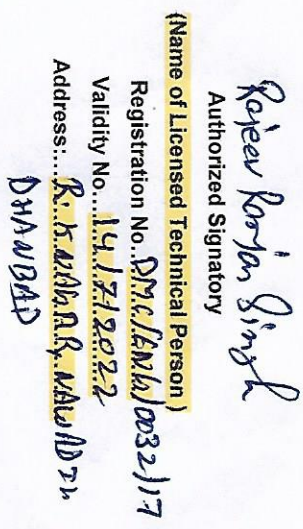 Rajeev Ranjan Singh
Authorized Signatory
(Name of Licensed Technical Person )
Registration No..DMC/ENG/0032/17
Validity No....14/7/2022
Address:....R. K NAGAR, NAWADIH
DHANBAD